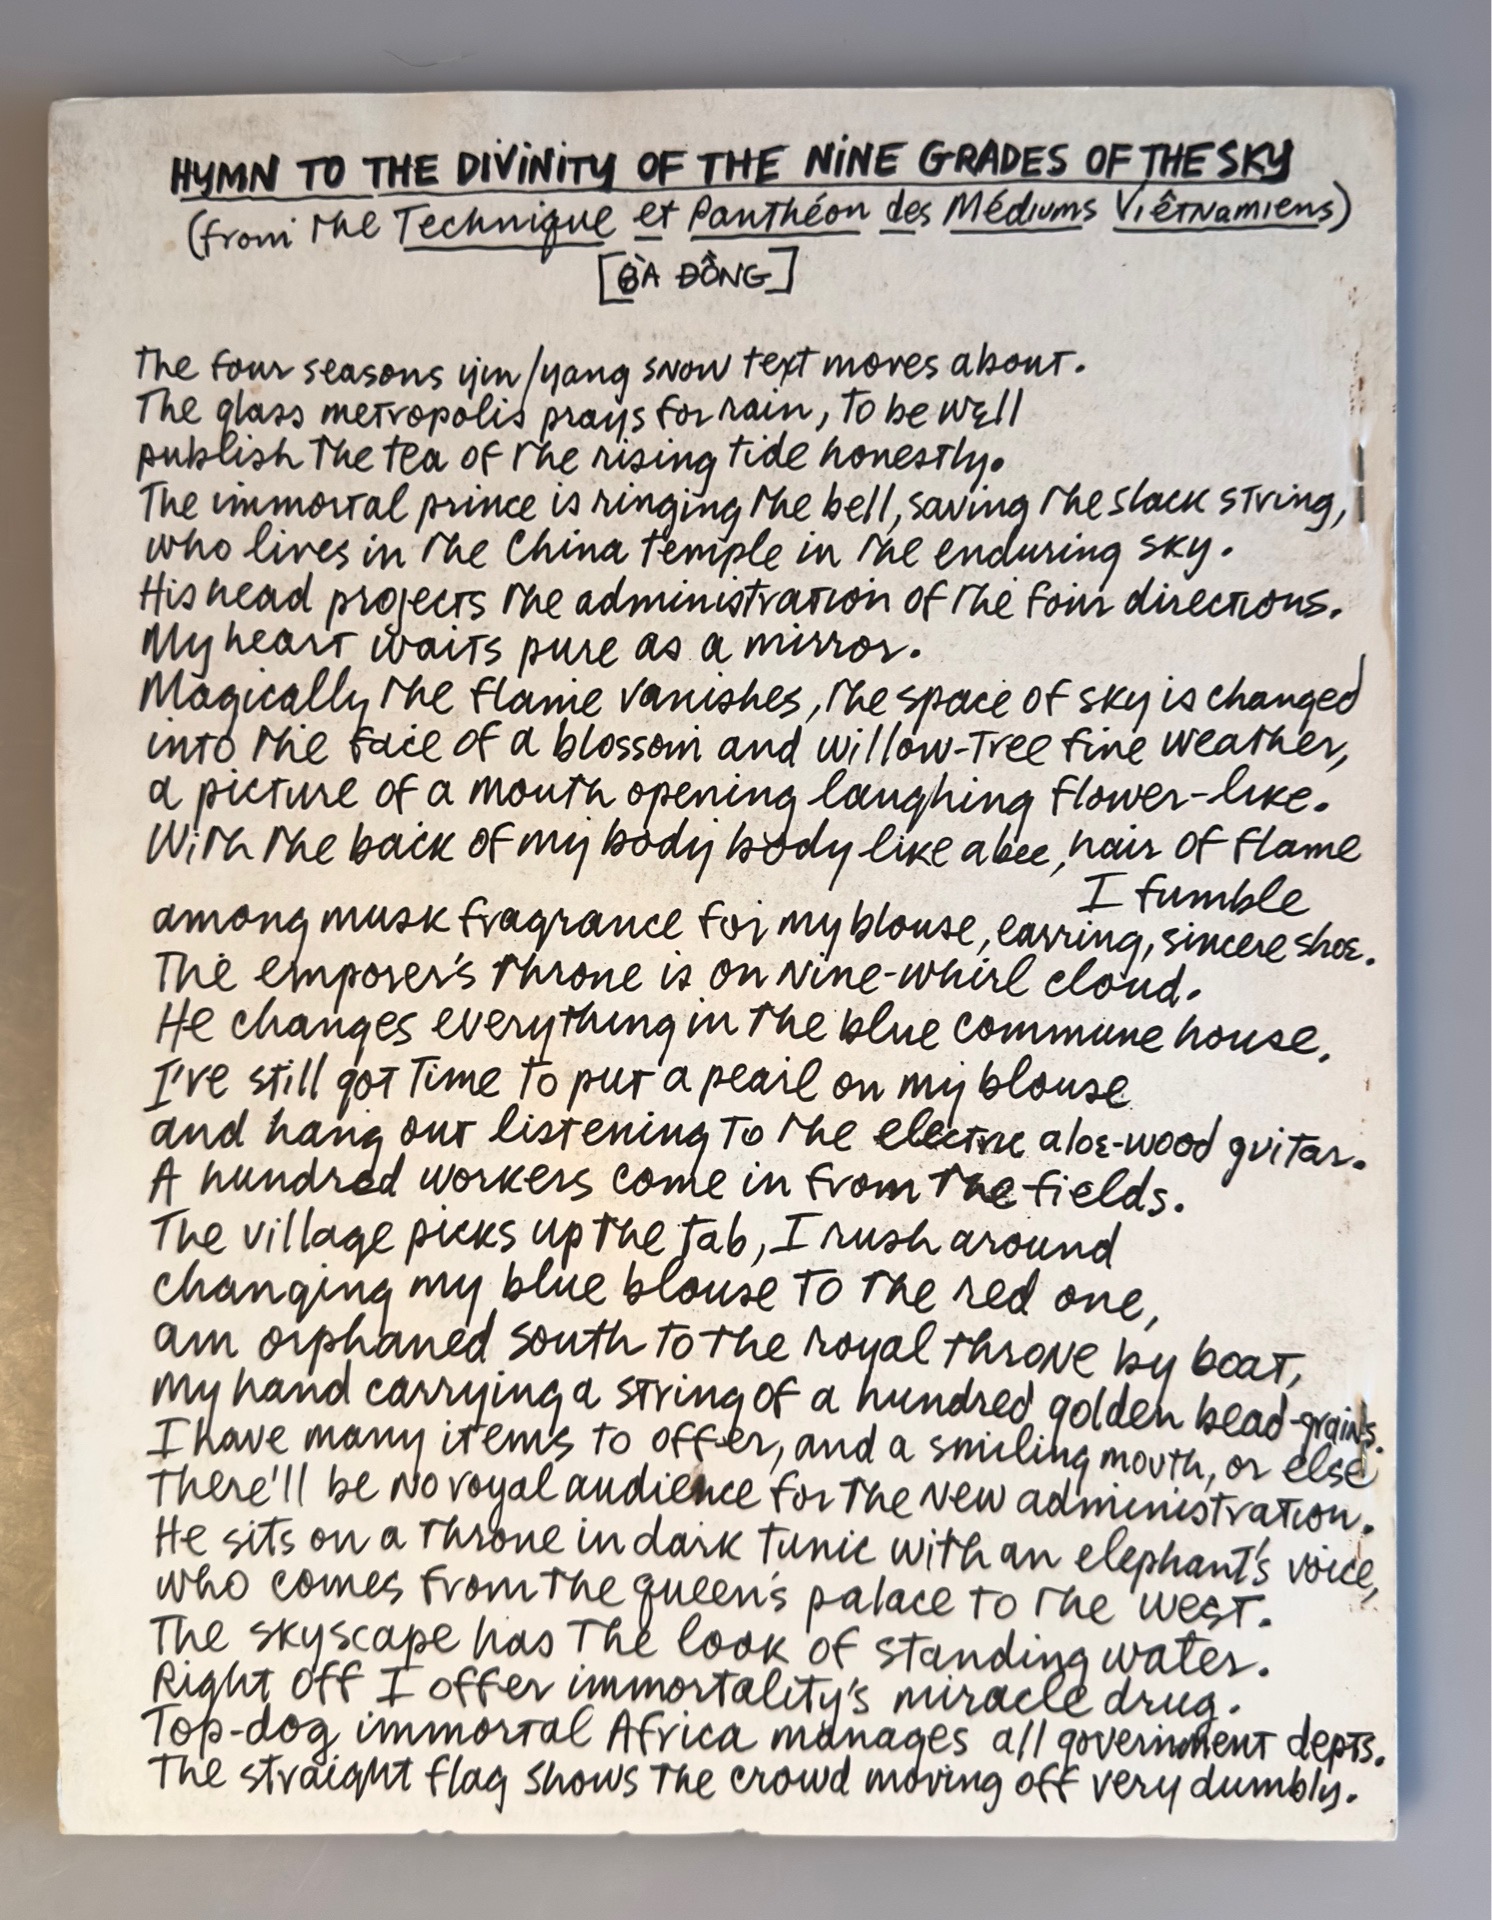 HYMN TO THE DIVINITY OF THE NINE GRADES OF THE SKY
(from the Technique et Panthéon des Médiums Viêtnamiens)
[BÀ ĐỒNG]
The four seasons yin/yang snow text moves about.
The glass metropolis prays for rain, to be well
publish the tea of the rising tide honestly.
The immortal prince is ringing the bell, saving the slack string,
who lives in the China temple in the enduring sky.
His head projects the administration of the four directions.
My heart waits pure as a mirror.
Magically the flame vanishes, the space of sky is changed
into the face of a blossom and willow-tree fine weather,
a picture of a mouth opening laughing flower-like.
With the back of my body body like a bee, hair of flame
I fumble
among musk fragrance for my blouse, earring, sincere shoe.
The emporer's throne is on nine-whirl cloud.
He changes everything in the blue commune house.
I've still got time to put a pearl on my blouse
and hang out listening to the electric aloe-wood guitar.
A hundred workers come in from the fields.
The village picks up the tab, I rush around
changing my blue blouse to the red one,
am orphaned south to the royal throne by boat,
my hand carrying a string of a hundred golden bead-grains.
I have many items to offer, and a smiling mouth, or else
there'll be no royal audience for the new administration.
He sits on a throne in dark tunic with an elephant's voice,
who comes from the queen's palace to the west.
The skyscape has the look of standing water.
Right off I offer immortality's miracle drug.
Top-dog immortal Africa manages all government depts.
The straight flag shows the crowd moving off very dumbly.